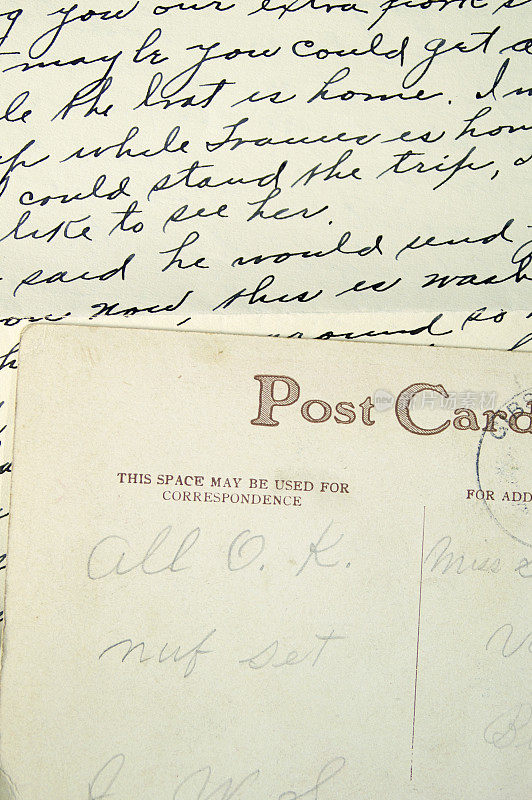 you our extra pork
maybe you could get a
le the brat is home. I
up while Frances is hom
could stand the trip,
like to see her.
said he would send
now, this is wash
around so
Post Card
THIS SPACE MAY BE USED FOR
CORRESPONDENCE
FOR ADD
All O. K.
Miss
nuf set